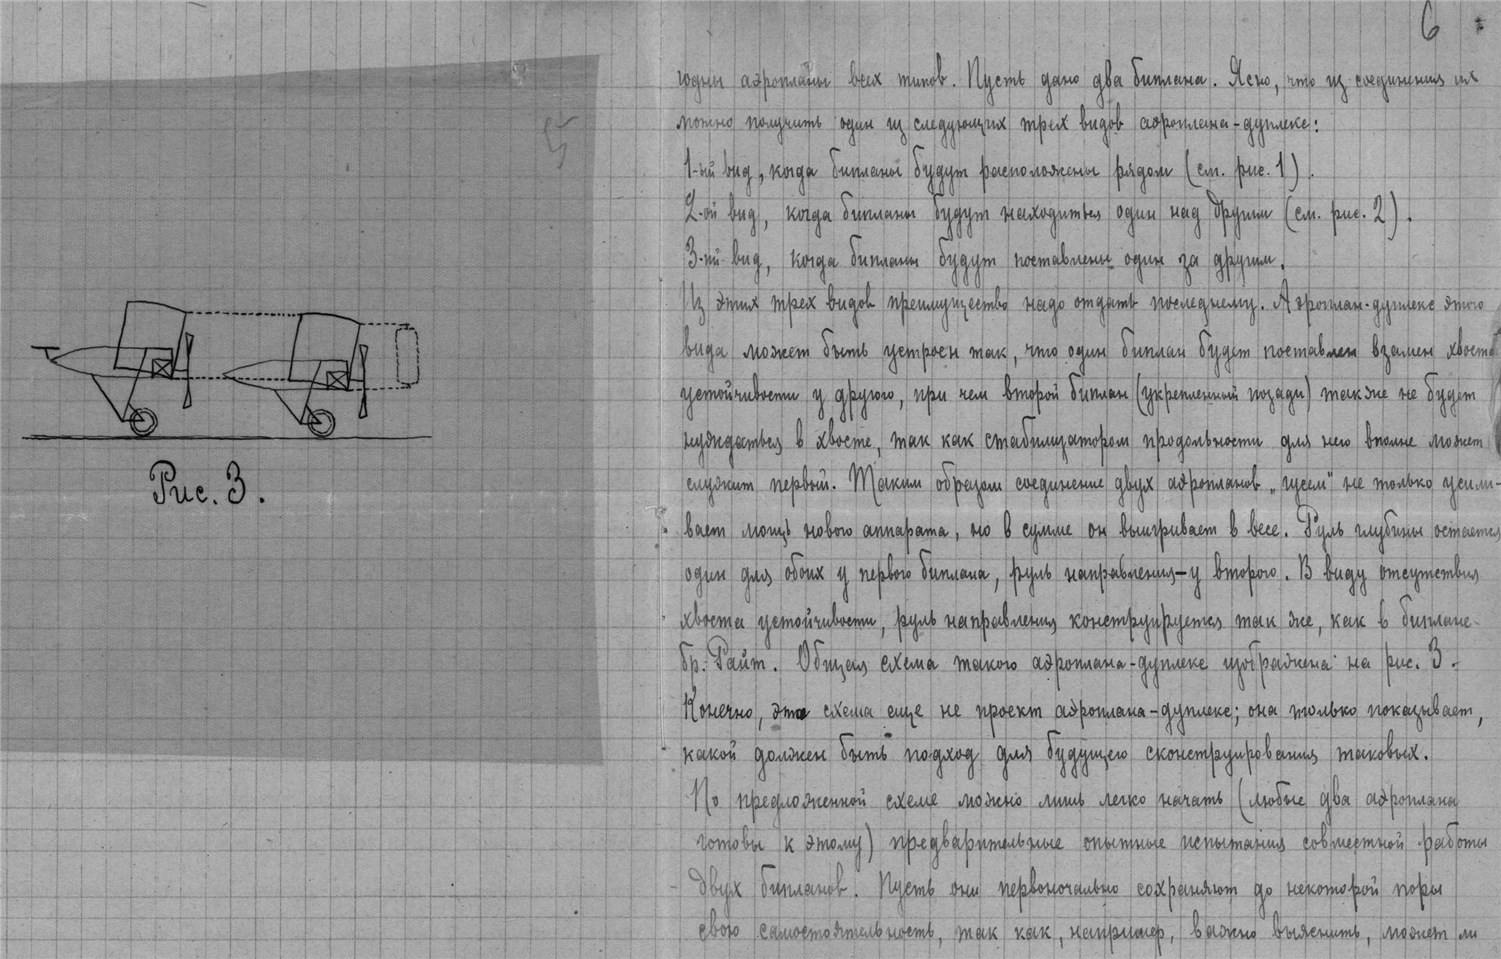 6
годны аэропланы всех типов. Пусть дано два биплана. Ясно, что из соединения их
можно получить один из следующих трех видов аэроплана-дуплекс:
1-ый вид, когда бипланы будут расположены рядом (см. рис. 1).
2-ой вид, когда бипланы будут находиться один над другим (см. рис. 2).
3-ий вид, когда бипланы будут поставлены один за другим.
Из этих трех видов преимущество надо отдать последнему. Аэроплан-дуплекс этого
вида может быть устроен так, что один биплан будет поставлен взамен хвоста
устойчивости у другого, при чем второй биплан (укрепленный позади) также не будет
нуждаться в хвосте, так как стабилизатором продольности для него вполне может
служит первый. Таким образом соединение двух аэропланов „гусем" не только усили-
вает мощь нового аппарата, но в сумме он выигривает в весе. Руль глубины остается
один для обоих у первого биплана, руль направления – у второго. В виду отсутствия
хвоста устойчивости, руль направления конструируется так же, как в биплане
бр. Райт. Общая схема такого аэроплана-дуплекс изображена на рис. 3.
Конечно, эта схема еще не проект аэроплана-дуплекс; она только показывает,
какой должен быть подход для будущего сконструирования таковых.
По предложенной схеме можно лишь легко начать (любые два аэроплана
готовы к этому) предварительные опытные испытания совместной работы
двух бипланов. Пусть они первоначально сохраняют до некоторой поры
свою самостоятельность, так как, например, важно выяснить, может ли
5
Рис. 3.